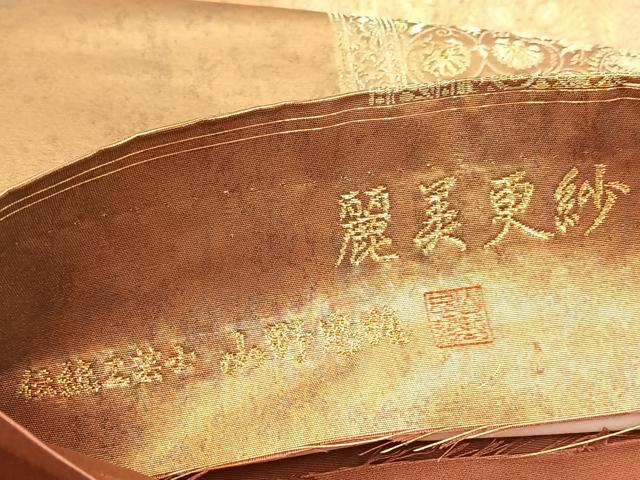 麗美更紗
伝統工芸士 山野